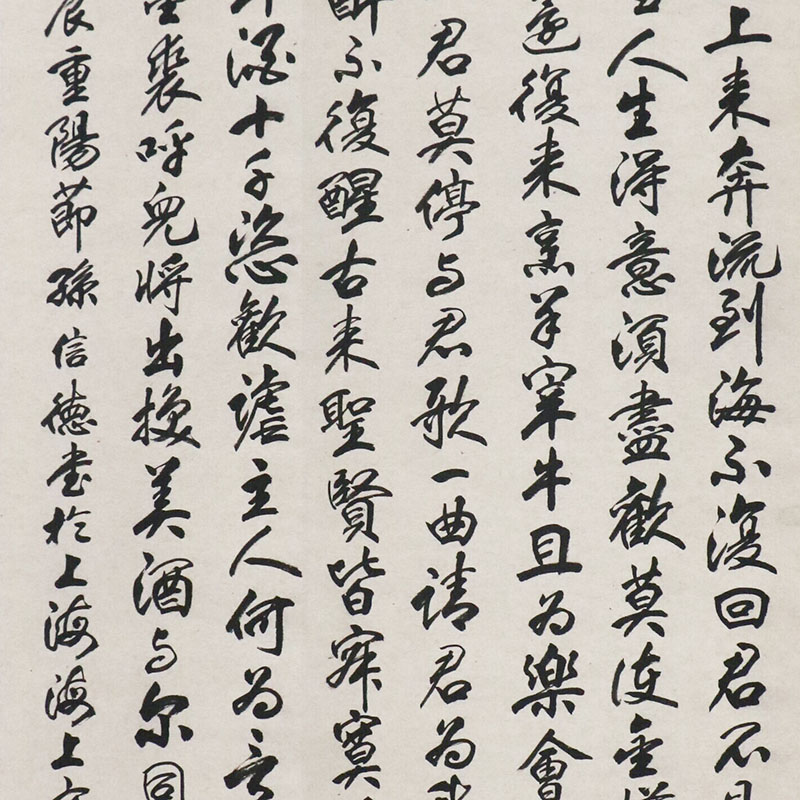 上来奔流到海不復回君不見
人生得意須盡歡莫使金樽
還復来烹羊宰牛且為樂會
君莫停与君歌一曲請君為我
醉不復醒古来聖賢皆寂寞
酒十千恣歡謔主人何為言
裘呼兒將出換美酒与尔同
辰重陽節孫信德书於上海海上